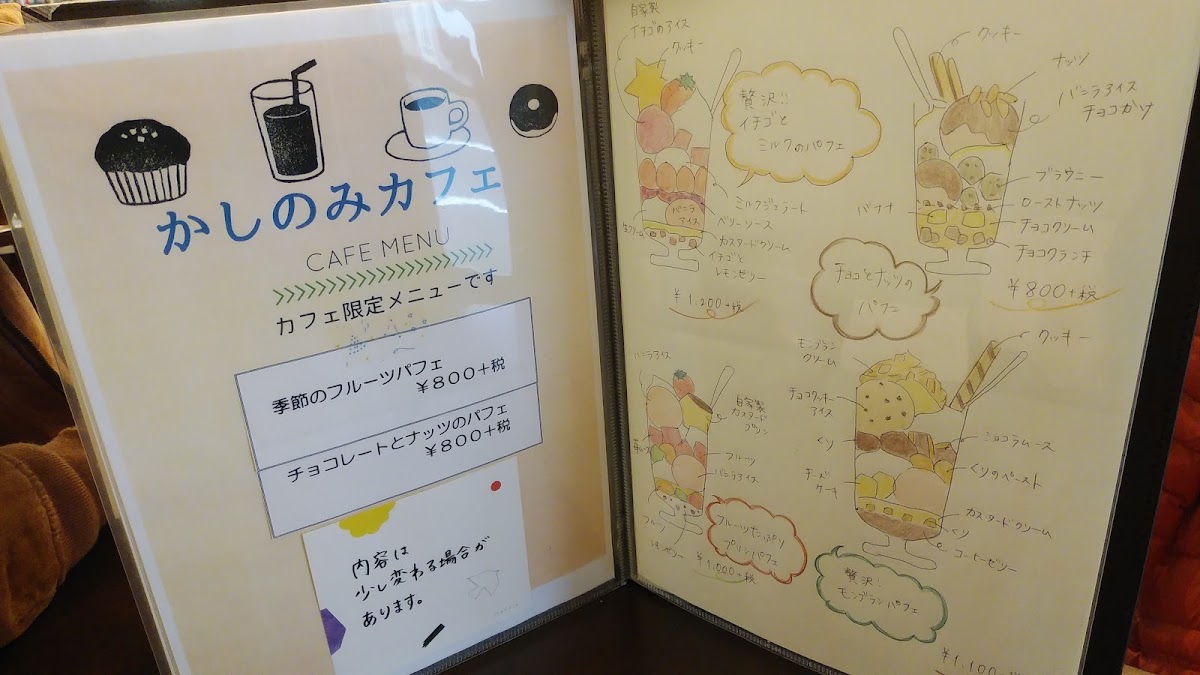 かしのみカフェ
CAFE MENU
カフェ限定メニューです
季節のフルーツパフェ
¥800+税
チョコレートとナッツのパフェ
¥800+税
内容は
少し変わる場合が
あります。
自家製
イチゴのアイス
クッキー
贅沢!!
イチゴと
ミルクのパフェ
ミルクジェラート
ベリーソース
バニラ
アイス
生クリーム
カスタードクリーム
イチゴと
レモンゼリー
¥1,200+税
クッキー
ナッツ
バニラアイス
チョコかけ
ブラウニー
バナナ
ローストナッツ
チョコクリーム
チョコクランチ
チョコとナッツの
パフェ
¥800+税
バニラアイス
自家製
カスタード
プリン
フルーツ
バニラアイス
フルーツ
フルーツたっぷり
プリンパフェ
¥1,000+税
モンブラン
クリーム
クッキー
チョコクッキー
アイス
くり
ショコラムース
チーズ
ケーキ
くりのペースト
カスタードクリーム
くり
コーヒーゼリー
贅沢!
モンブランパフェ
¥1,100